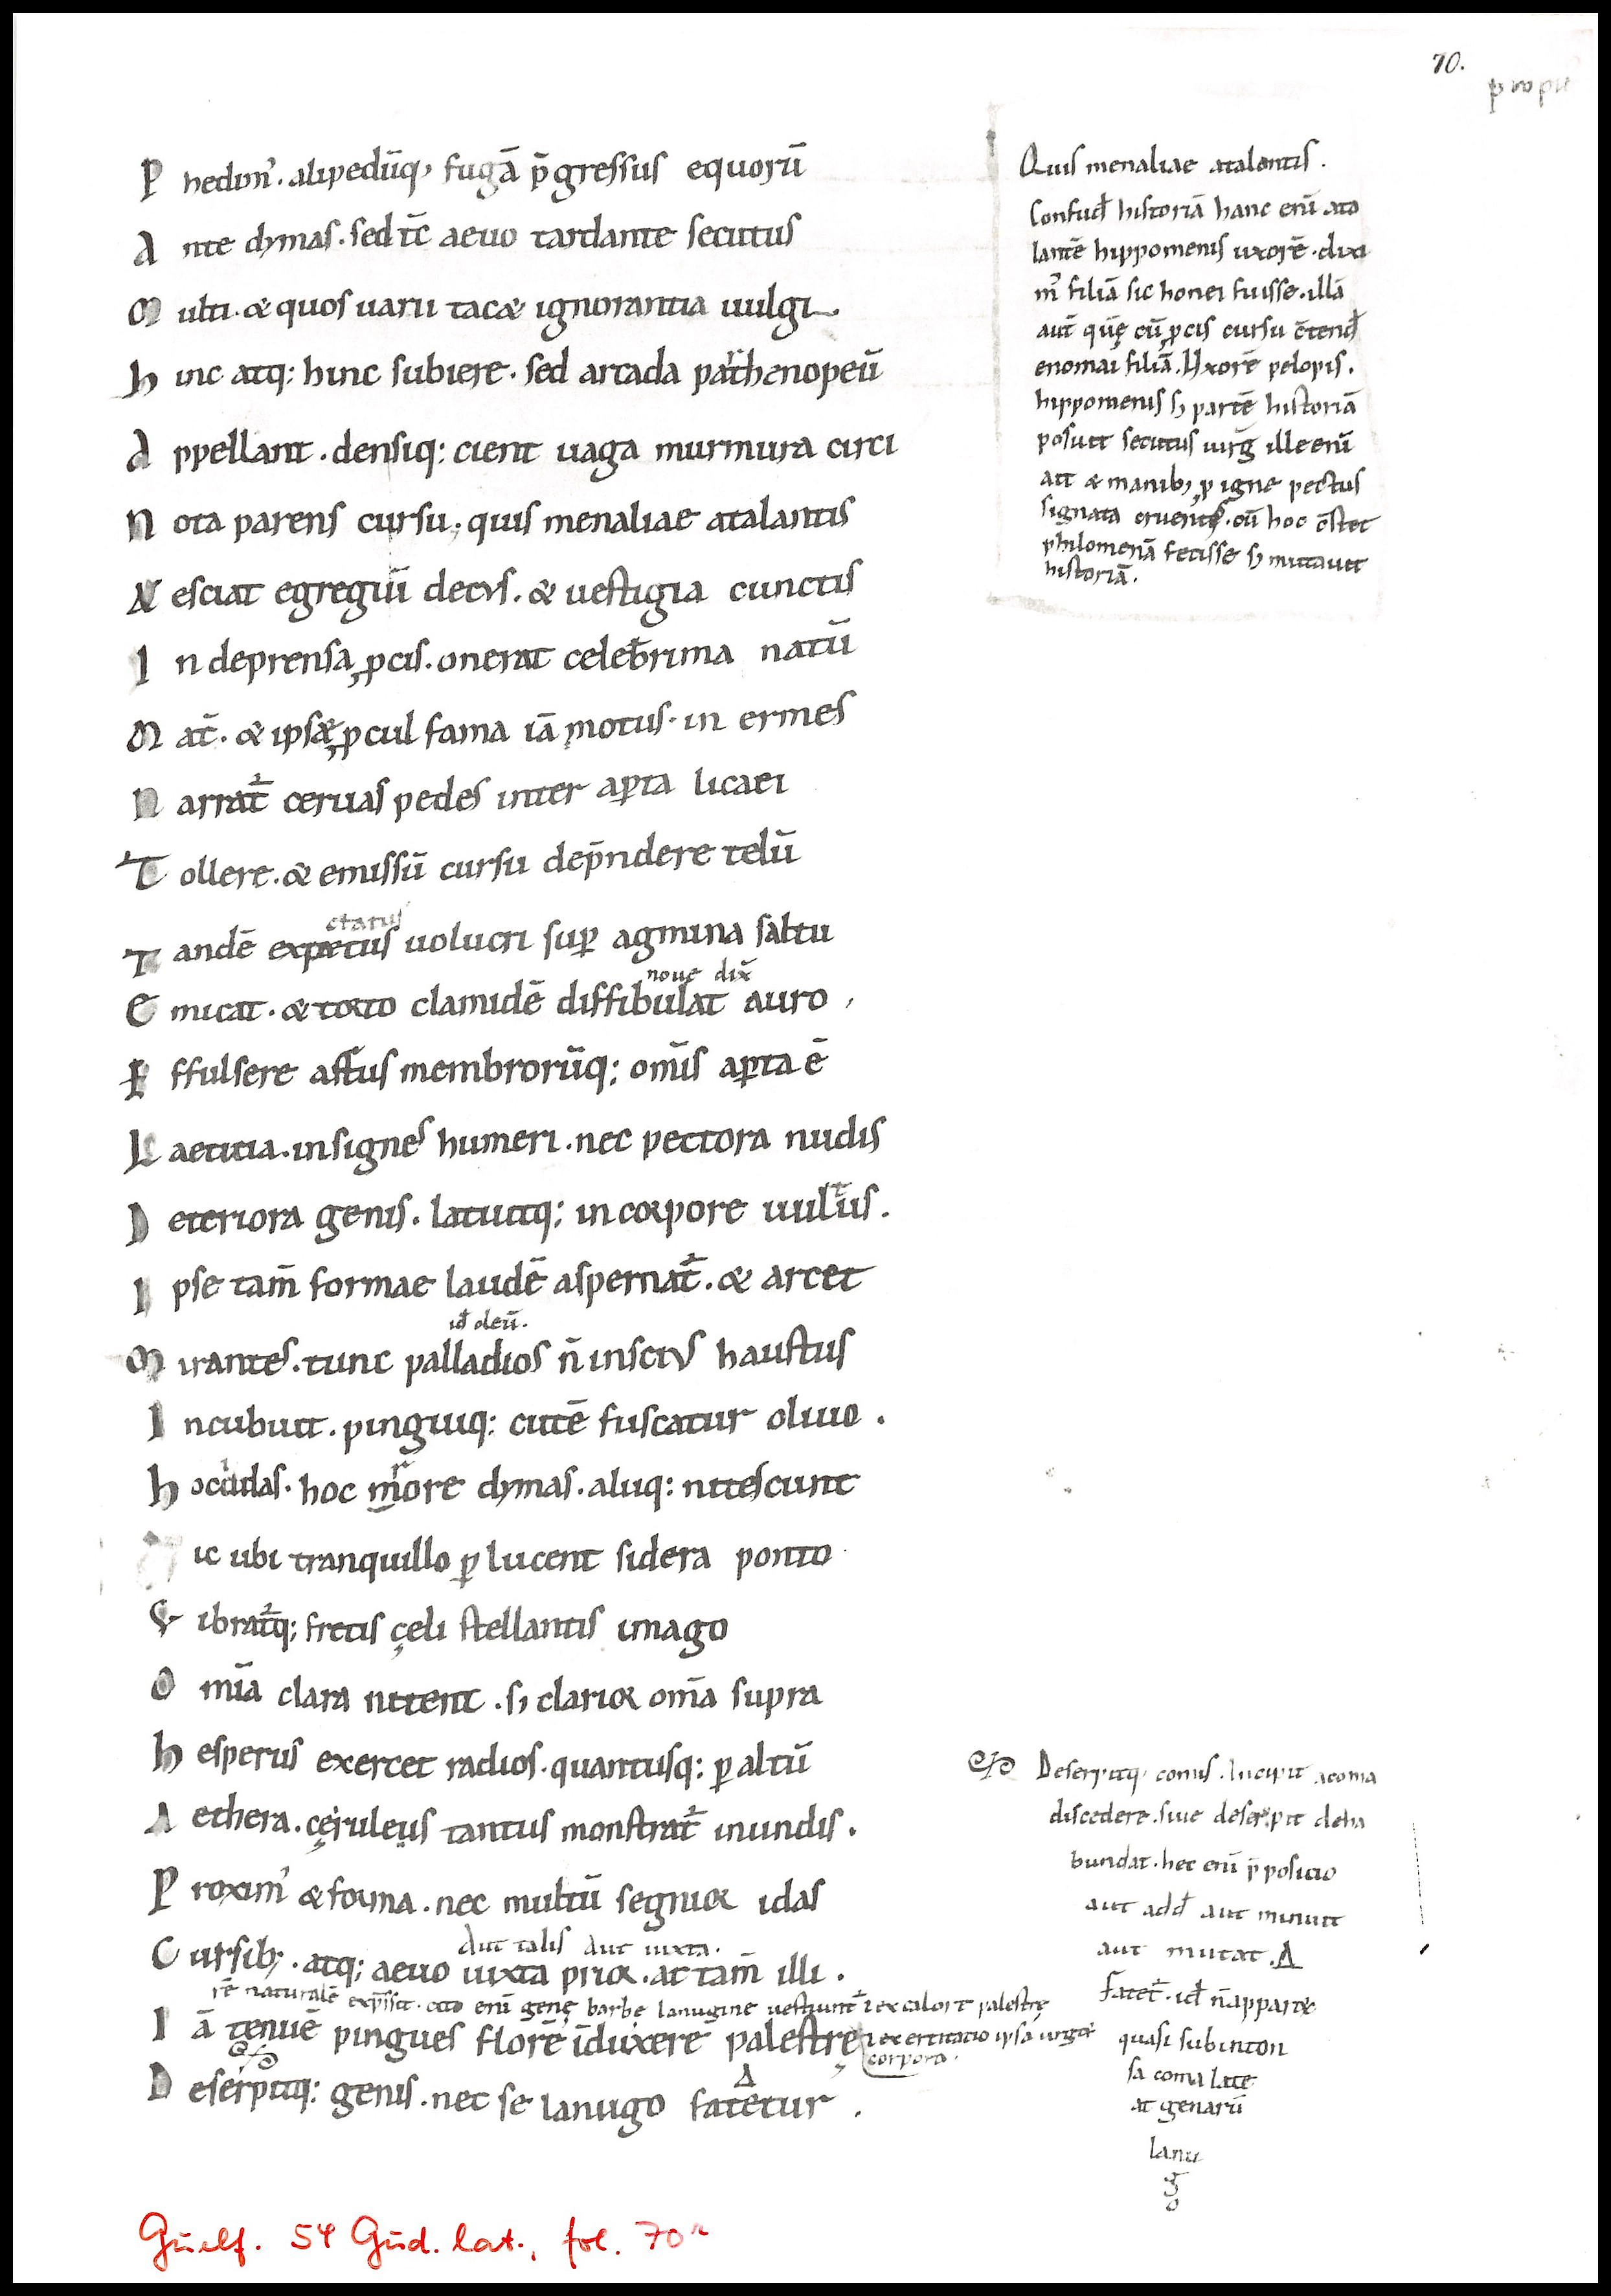 70.
P hedimꝰ. alipedūq; fugā p̄gressus equorū
A nte dymas. sed tc̄ aeuo tardante secutus
M ulti. & quos uarii tac& ignorantia uulgi
H inc atq: hinc subiere. sed arcada parthenopeū
A ppellant. densiq: cient uaga murmura circi
N ota parens cursu. quis menaliae atalantis
N esciat egregiū decus. & uestigia cunctis
I n deprensa ꝓcis. onerat celeb̄rima natū
M at̄. & ipse ꝓcul fama iā motus. in ermes
N arrat̄ ceruas pedes inter aꝑta licaei
T ollere. & emissū cursu dep̄ndere telū
ctatus
T andē expectus uolucri suꝑ agmina saltu
noue dix̄
E micat. & torto clamidē diffibulat auro,
E ffulsere artus membrorūq; om̄is aꝑta ē
L aetitia. insignes humeri. nec pectora nudis
D eteriora genis. latuitq; in corpore uultus.
I pse tam̄ formae laudē aspernat̄. & arcet
id̄ oleū.
M irantes. tunc palladios n̄ inscius haustus
I ncubuit. pinguiq: cutē fuscatur oliuo.
H oc idas. hoc more dymas. aliiq: nitescunt
ic ubi tranquillo ꝑ lucent sidera ponto
V ibrat̄q; fretis çeli stellantis imago
O mīa clara nitent. s; clarior om̄a supra
H esperus exercet radios. quantusq: ꝑ altū
A ethera. cęruleus tantus monstrat̄ inundis.
P roximꝰ & forma. nec multū segnior idas
Aut talis Aut iuxta.
C ursib;. atq; aeuo iuxta prior. at tam̄ illi.
rē naturalē exp̄ssit. cito enī genę barbę lanugine uestiunt̄ ł ex calore palestrę
I ā tenuē pingues florē īduxere palestrę ł ex ertitatio ipsa ungit
corpora.
D eserpitq: genis. nec se lanugo fatetur.
Quis menaliae atalantis.
Confud̄ historiā hanc enī ata
lantē hippomenis uxorē. dixi
mꝰ filiā sichonei fuisse. illā
aut̄ quę cū ꝓcis cursu c̄tend̄
enomai filiā. Uxorē pelopis.
hippomenis s; partē historiā
posuit secutus uirḡ ille enī
ait & manib; ꝓ igne pectus
signata cruentę. cū hoc c̄stet
philomenā fecisse s; mutauit
historiā.
Deserpitq; comis. Incipit acoma
discedere. siue deserpit deha
bundat. hec enī p̄posicio
aut add̄ aut minuit
aut mutat. Δ
Fatet̄. id̄ n̄ appar&
quasi subinton
sa coma late
at genarū
lanu
g
o
Guelf. 54 Gud. lat., fol. 70r